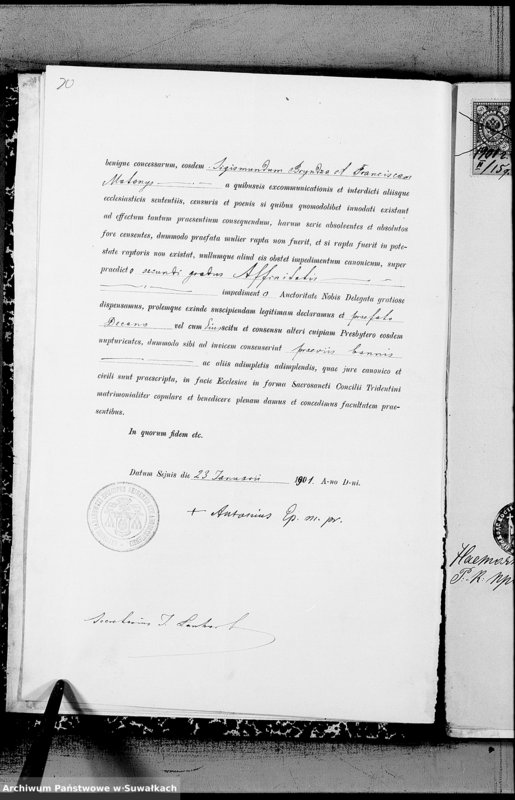 70
benigne concessarum, eosdem Sigismundum Bryndza et Franciscam
Matonys a quibusvis excommunicationis et interdicti aliisque
ecclesiasticis sententiis, censuris et poenis si quibus quomodolibet innodati existant
ad effectum tantum praesentium consequendum, harum serie absolventes et absolutos
fore censentes, dummodo praefata mulier rapta non fuerit, et si rapta fuerit in pote-
state raptoris non existat, nullumque aliud eis obstet impedimentum canonicum, super
praedicto secundi gradus Affinitatis
impedimento Auctoritate Nobis Delegata gratiose
dispensamus, prolemque exinde suscipiendam legitimam declaramus et praefato
Decano vel cum ejus scitu et consensu alteri cuipiam Presbytero eosdem
nupturientes, dummodo sibi ad invicem consenserint praeviis bannis
ac aliis adimpletis adimplendis, quae jure canonico et
civili sunt praescripta, in facie Ecclesiae in forma Sacrosancti Concilii Tridentini
matrimonialiter copulare et benedicere plenam damus et concedimus facultatem prae-
sentibus.
In quorum fidem etc.
Datum Sejnis die 23 Januarii 1901. A-no D-ni.
+ Antonius Ep. m. pr.
Secretarius
1901
Archiwum Państwowe w Suwałkach